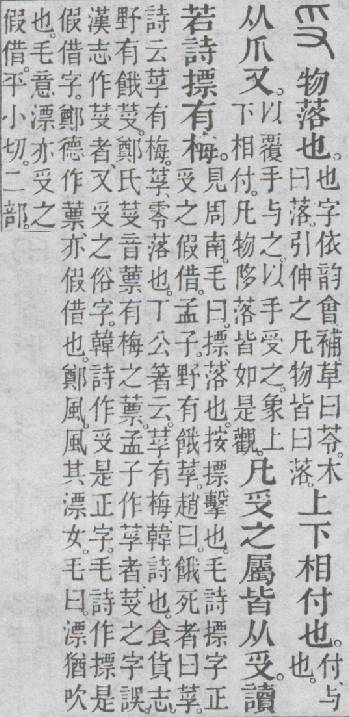 𠬪物落也。也字依韵會補草曰苓。木曰落。引伸之凡物皆曰落。上下相付也。付、与也。
从爪又。以覆手与之。以手受之。象上下相付。凡物阤落皆如是觀。凡𠬪之屬皆从𠬪。讀
若詩摽有梅。見周南。毛曰。摽、落也。按摽、擊也。毛詩摽字正𠬪之假借。孟子。野有餓莩。趙曰。餓死者曰莩。
詩云。莩有梅。莩、零落也。丁公著云。莩有梅、韓詩也。食貨志。
野有餓。鄭氏音蔈有梅之蔈。孟子作莩者、之字誤。
漢志作者、又𠬪之俗字。韓詩作𠬪是正字。毛詩作摽是
假借字。鄭德作蔈、亦假借也。鄭風。風其漂女。毛曰。漂猶吹
也。毛意漂亦𠬪之
假借。平小切。二部。